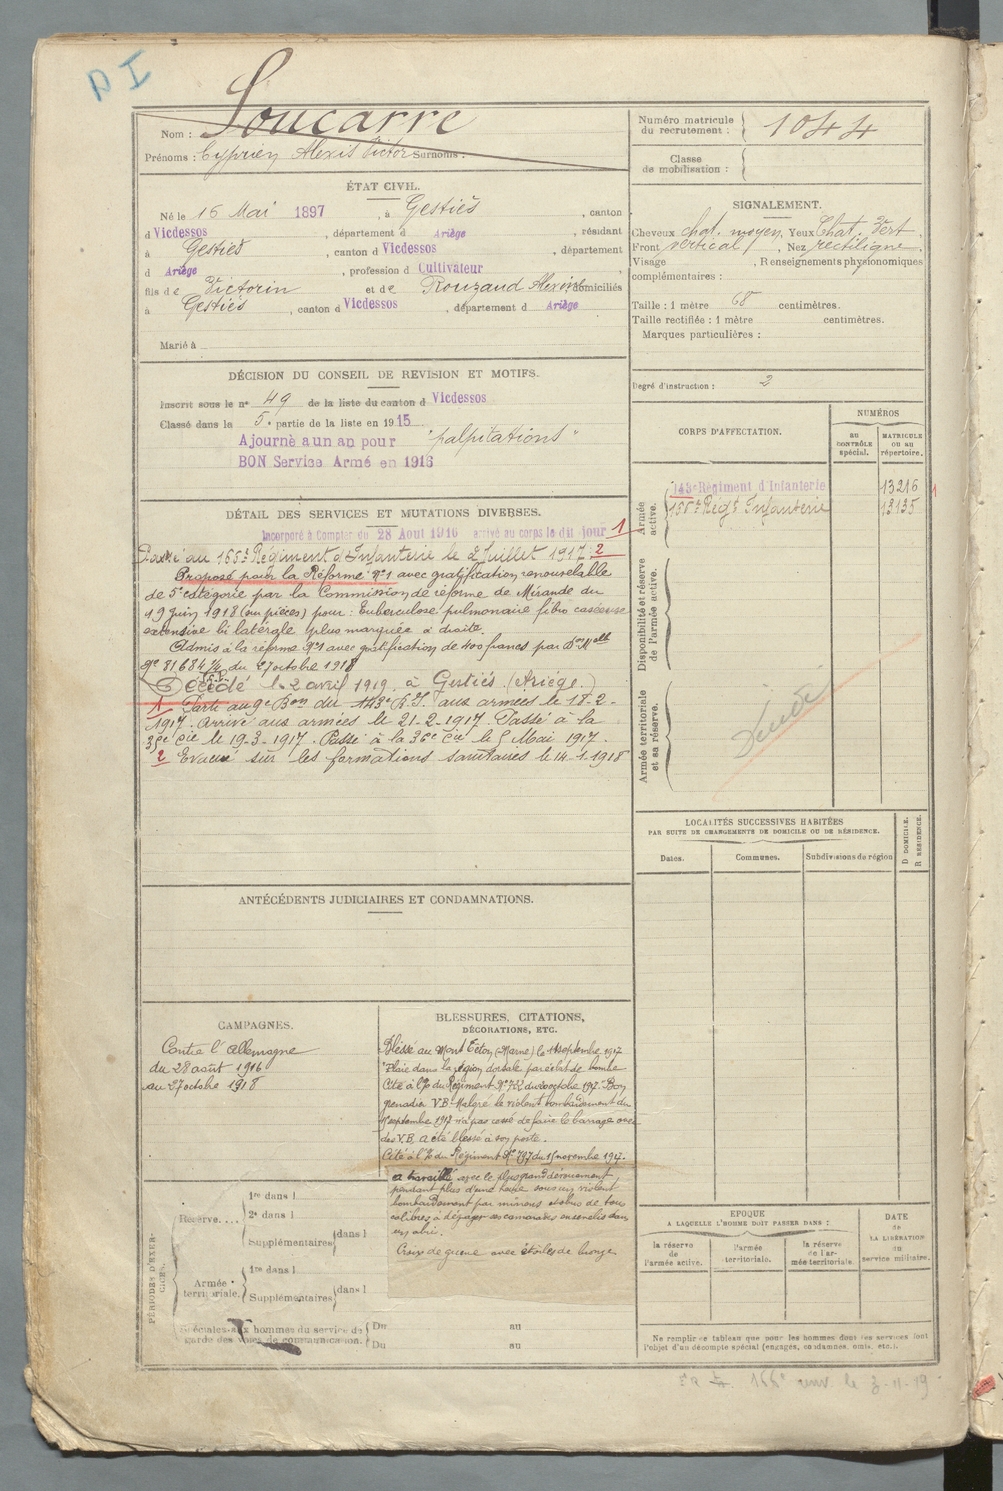 D I
Nom : Soucarre
Prénoms : Cyprien Alexis Victor Surnoms :
Numéro matricule
du recrutement : 1044
Classe
de mobilisation :
ÉTAT CIVIL.
Né le 16 Mai 1897, à Gestiès, canton
d Vicdessos, département d Ariège, résidant
à Gestiès, canton d Vicdessos, département
d Ariège, profession d Cultivateur
fils de Victorin et de Rouzaud Alexis domiciliés
à Gestiès, canton d Vicdessos, département d Ariège
Marié à
SIGNALEMENT.
Cheveux chat. moyen. Yeux Chat. Vert
Front vertical, Nez rectiligne
Visage, Renseignements physionomiques
complémentaires :
Taille : 1 mètre 68 centimètres.
Taille rectifiée : 1 mètre centimètres.
Marques particulières :
Degré d'instruction : 2
DÉCISION DU CONSEIL DE REVISION ET MOTIFS.
Inscrit sous le no 49 de la liste du canton d Vicdessos
Classé dans le 5e partie de la liste en 1915
Ajourné a un an pour "palpitations"
BON Service Armé en 1916
CORPS D'AFFECTATION.
NUMÉROS
AU CONTRÔLE spécial.
MATRICULE ou au répertoire.
Armée active.
143e Régiment d'Infanterie 13216 1
Régt Infanterie 13135
Disponibilité et réserve de l'armée active.
Armée territoriale et sa réserve.
Décédé
DÉTAIL DES SERVICES ET MUTATIONS DIVERSES.
Incorporé à Compter du 28 Aout 1916 arrivé au corps le dit jour 1
Passé au Régiment d'Infanterie le 2 Juillet 1917. 2
Proposé pour la Réforme No 1 avec gratification renouvelable
de 5e catégorie par la Commission de réforme de Mirande du
19 juin 1918 (sur pièces) pour : Tuberculose pulmonaire fibro caséeuse
extensive bi latérale plus marquée à droite.
Admis à la réforme No 1 avec gratification de 400 francs par Don Melle
No 81684 du 27 octobre 1918
Décédé le 2 avril 1919 à Gestiès (Ariège.)
1 Parti au 9e Bon du 143e R.I. aux armées le 18-2-
1917. Arrivé aux armées le 21-2-1917. Passé à la
Cie le 19-3-1917. Passé à la 36e Cie le 5 Mai 1917.
2 Evacué sur les formations sanitaires le 14-1-1918
LOCALITÉS SUCCESSIVES HABITÉES
PAR SUITE DE CHANGEMENTS DE DOMICILE OU DE RÉSIDENCE.
Dates.
Communes.
Subdivisions de région
D DOMICILE.
R RÉSIDENCE.
ANTÉCÉDENTS JUDICIAIRES ET CONDAMNATIONS.
CAMPAGNES.
Contre l'Allemagne
du 28 août 1916
au 27 octobre 1918
BLESSURES, CITATIONS,
DÉCORATIONS, ETC.
Blessé au Mont Têton (Marne) le septembre 1917
"Plaie dans la région dorsale par éclat de bombe
Cité à l'O du Régiment No du 20 octobre 1917. Bon
grenadier V.B. Malgré le violent bombardement du
septembre 1917 n'a pas cessé de faire le barrage avec
des V.B. a été blessé à son poste.
Cité à l'O du Régiment No 737 du 15 novembre 1917.
a travaillé avec le plus grand dévouement
pendant plus d'une heure sous un violent
bombardement par minens et obus de tous
calibres à dégager ses camarades ensevelis dans
un abri.
Croix de guerre avec étoiles de bronze
PÉRIODES D'EXERCICES.
Réserve....
1re dans l
2e dans l
Supplémentaires dans l
Armée territoriale.
1re dans l
Supplémentaires dans l
Spéciales aux hommes du service de
garde des voies de communication.
Du au
Du au
EPOQUE
A LAQUELLE L'HOMME DOIT PASSER DANS :
la réserve de l'armée active.
l'armée territoriale.
la réserve de l'armée territoriale.
DATE
de
LA LIBÉRATION
du
service militaire.
Ne remplir ce tableau que pour les hommes dont les services font
l'objet d'un décompte spécial (engagés, condamnés, omis, etc.).
env. le 3-11-19